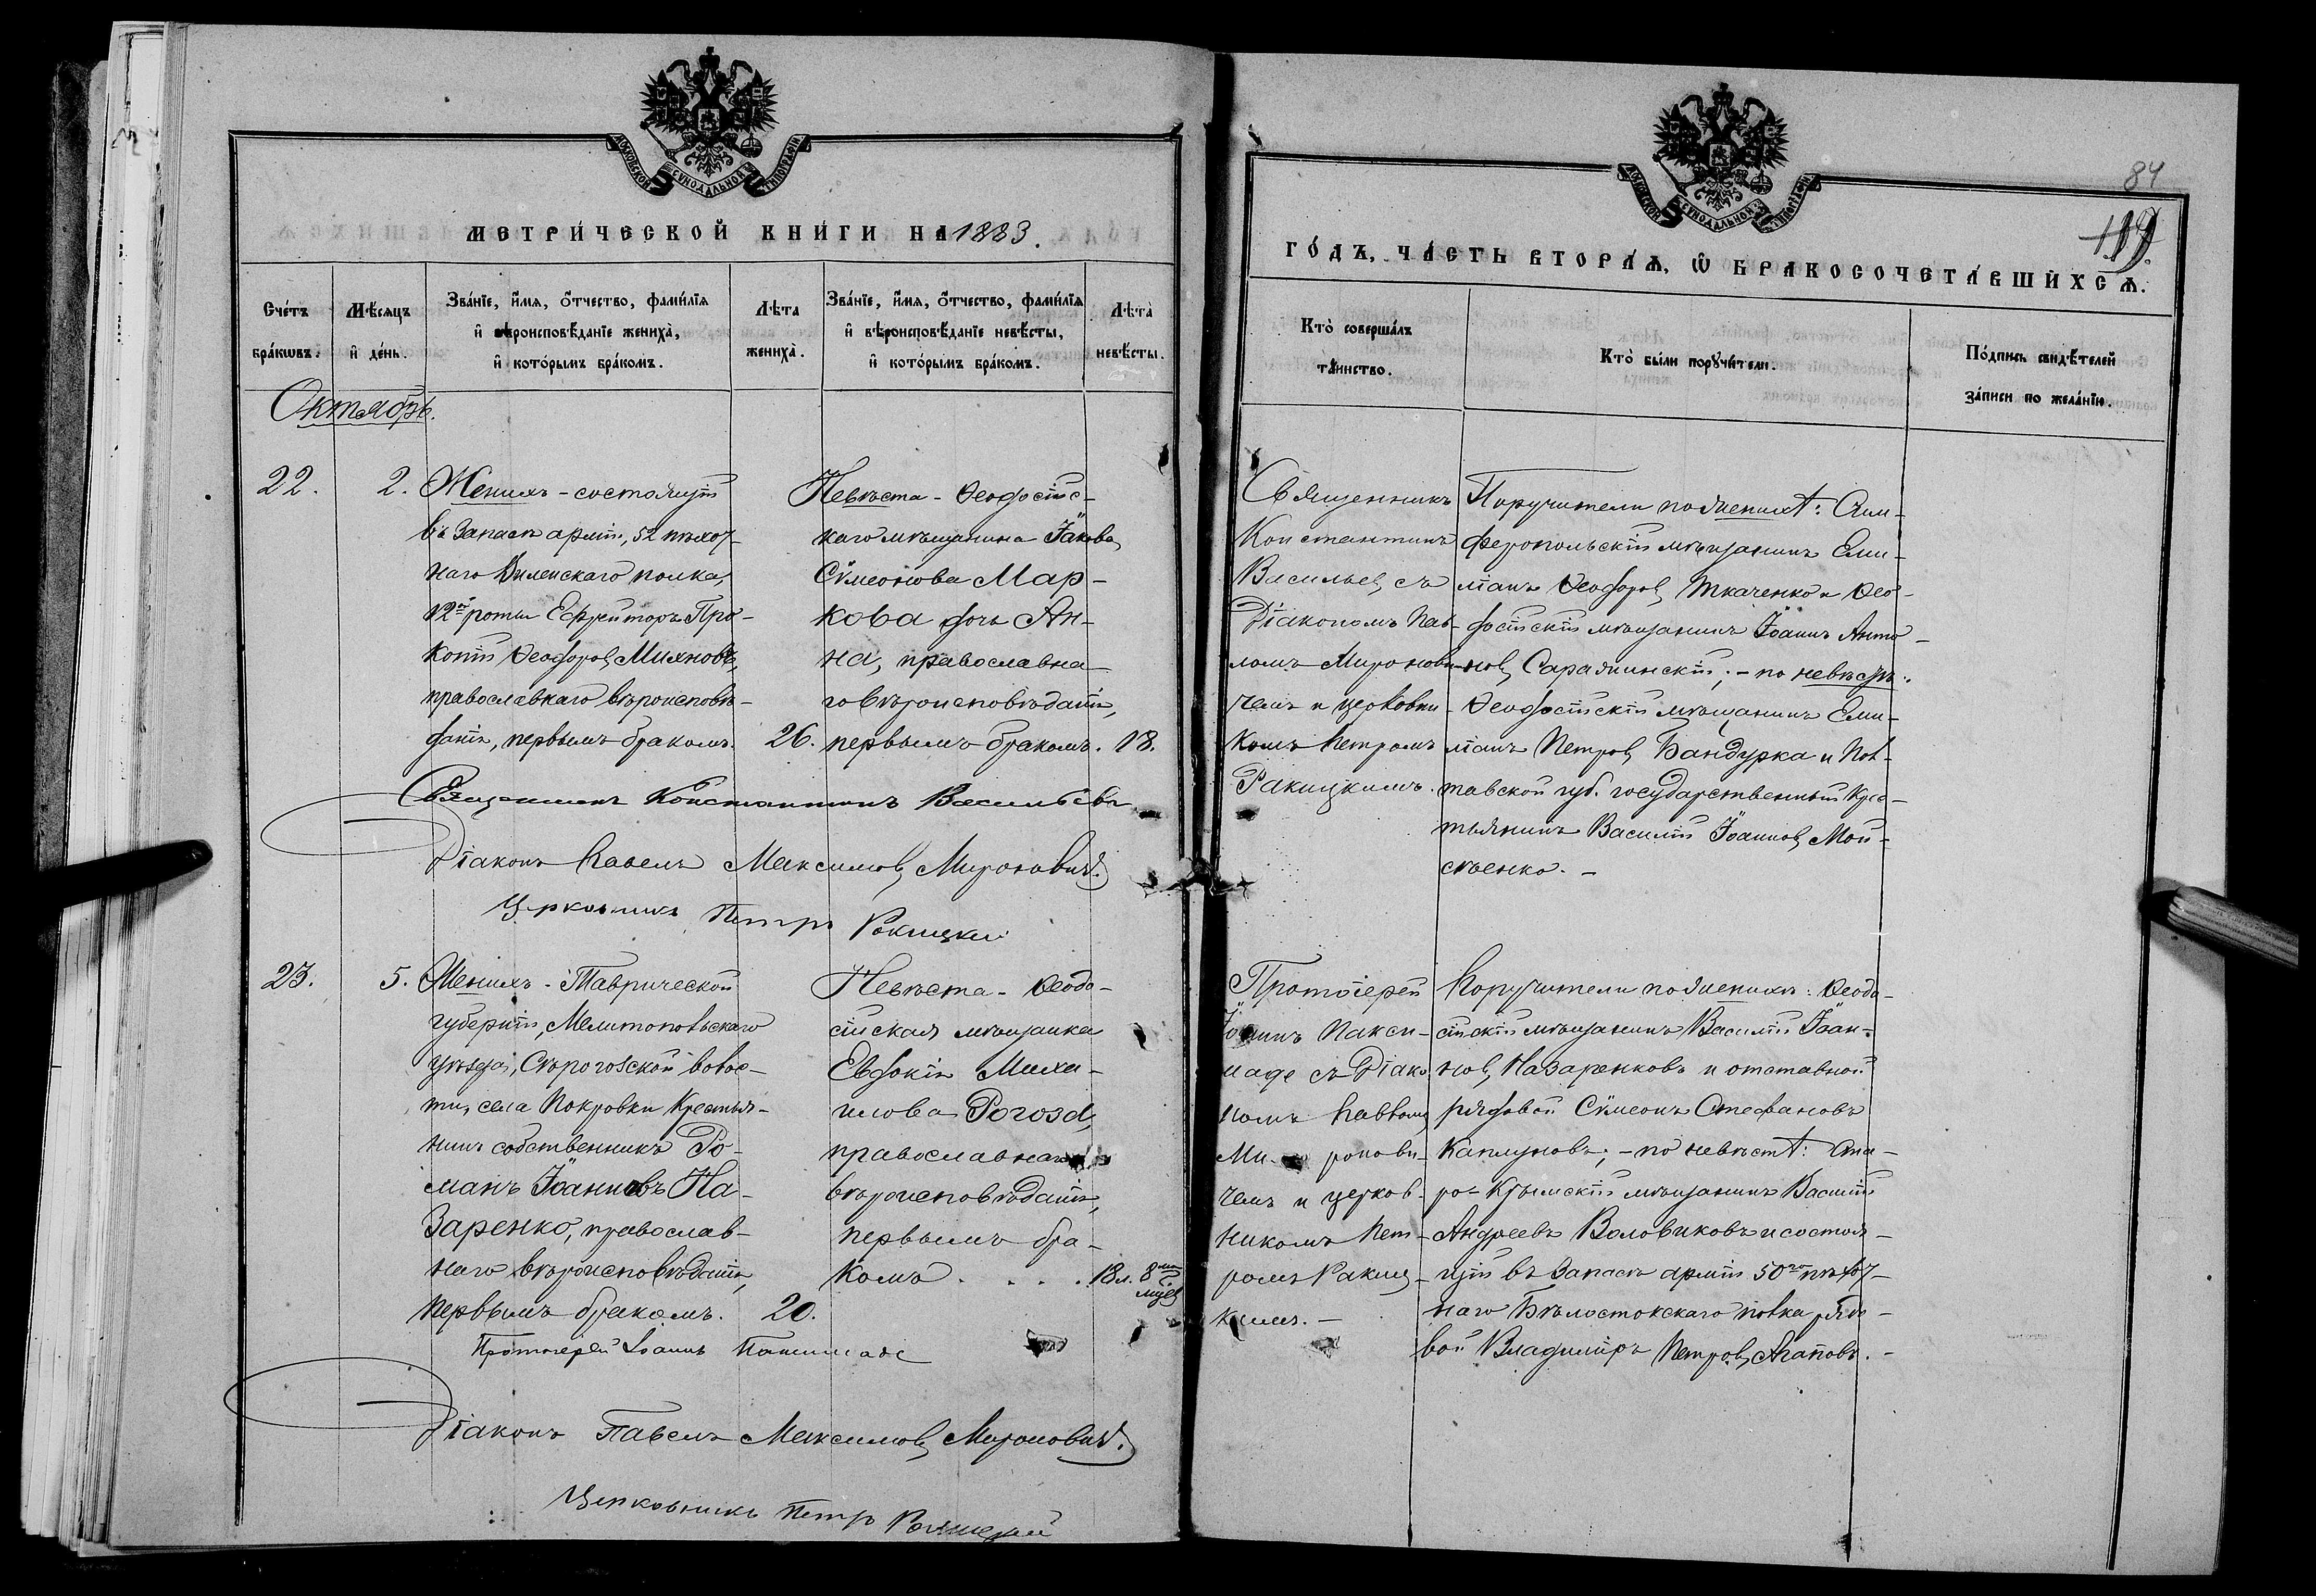 МЕТРИЧЕСКОЙ КНИГИ НА 1883.
Счетъ бракѡвъ.
Мѣсяцъ и день.
Званіе, имя, отчество, фамилія и вѣроисповѣданіе жениха, и которымъ бракомъ.
Лѣта жениха.
Званіе, имя, отчество, фамилія и вѣроисповѣданіе невѣсты, и которымъ бракомъ.
Лѣта невѣсты.
Октябрь.
22.
2.
Женихъ - состоящій
въ Запасѣ арміи, 52 пѣхот-
наго Виленскаго полка,
12й роты Ефрейторъ Про-
копій Ѳеодоровъ Михновъ,
православнаго вѣроисповѣ-
данія, первымъ бракомъ.
26.
Невѣста - Ѳеодосійс-
каго мѣщанина Іакова
Сѵмеонова Мар-
кова дочь Ан-
на, православна-
го вѣроисповѣданія,
первымъ бракомъ.
18.
Священникъ Константинъ Васильевъ
Діаконъ Павелъ Максимовъ Мироновичъ.
Церковникъ Петръ Ракицкій
23.
5.
Женихъ - Таврической
губерніи, Мелитопольскаго
уѣзда, Сѣрогозской волос-
ти, села Покровки Крестья-
нинъ собственникъ Ро-
манъ Іоанновъ На-
заренко, православ-
наго вѣроисповѣданія,
первымъ бракомъ.
20.
Невѣста - Ѳеодо-
сійская мѣщанка
Евдокія Миха-
илова Рогоза,
православнаго
вѣроисповѣданія,
первымъ бра-
комъ . . . .
18 л. 8
Протоіерей Іоаннъ Паксимаде
Діаконъ Павелъ Максимовъ Мироновичъ.
Церковникъ Петръ Ракицкій
84
ГОДЪ, ЧАСТЬ ВТОРАЯ, Ѡ БРАКОСОЧЕТАВШИХСЯ.
Кто совершалъ таинство.
Кто были поручители.
Подпись свидѣтелей записи по желанію.
Священникъ
Константинъ
Васильевъ съ
Діакономъ Пав-
ломъ Миронови-
чемъ и церковни-
комъ Петромъ
Ракицкимъ.
Поручители по женихѣ: Сим-
феропольскій мѣщанинъ Еми-
ліанъ Ѳеодоровъ Ткаченко и Ѳео-
досійскій мѣщанинъ Іоаннъ Анто-
новъ Саражинскій; - по невѣстѣ:
Ѳеодосійскій мѣщанинъ Еми-
ліанъ Петровъ Бандурка и Пол-
тавской губ. государственный Крес-
тьянинъ Василій Іоанновъ Мой-
сѣенко. -
Протоіерей
Іоаннъ Пакси-
маде съ Діако
номъ Павломъ
Миронови-
чемъ и церков-
никомъ Пет-
ромъ Ракиц-
кимъ. -
Поручители по женихѣ: Ѳеодо-
сійскій мѣщанинъ Василій Іоан-
новъ Назаренковъ и отставной
рядовой Сѵмеонъ Стефановъ
Каплуновъ; - по невѣстѣ: Ста-
ро-Крымскій мѣщанинъ Василій
Андреевъ Воловиковъ и состоя-
щій въ Запасѣ арміи 50го пѣхот-
наго Бѣлостокскаго полка рядо-
вой Владиміръ Петровъ Агаповъ. -